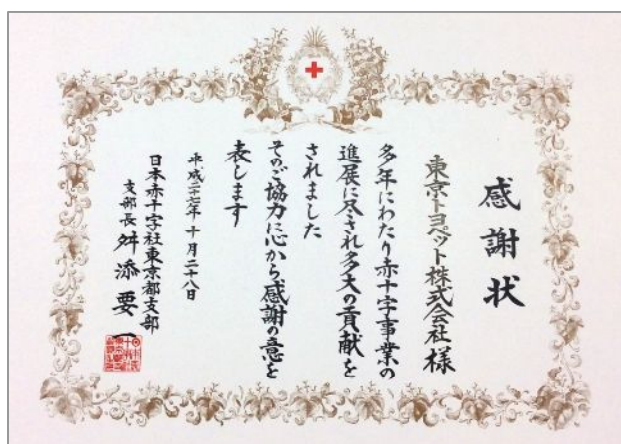 感謝状
東京トヨペット株式会社様
多年にわたり赤十字事業の
進展に尽され多大の貢献を
されました
そのご協力に心から感謝の意を
表します
平成二十七年十月二十八日
日本赤十字社東京都支部
支部長 舛添要一